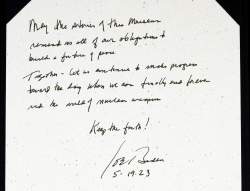 May the stories of this Museum
remind us all of our obligations to
build a future of peace.
Together - let us continue to make progress
toward the day when we can finally and forever
rid the world of nuclear weapons.
Keep the faith!
Joe Biden
5-19-23